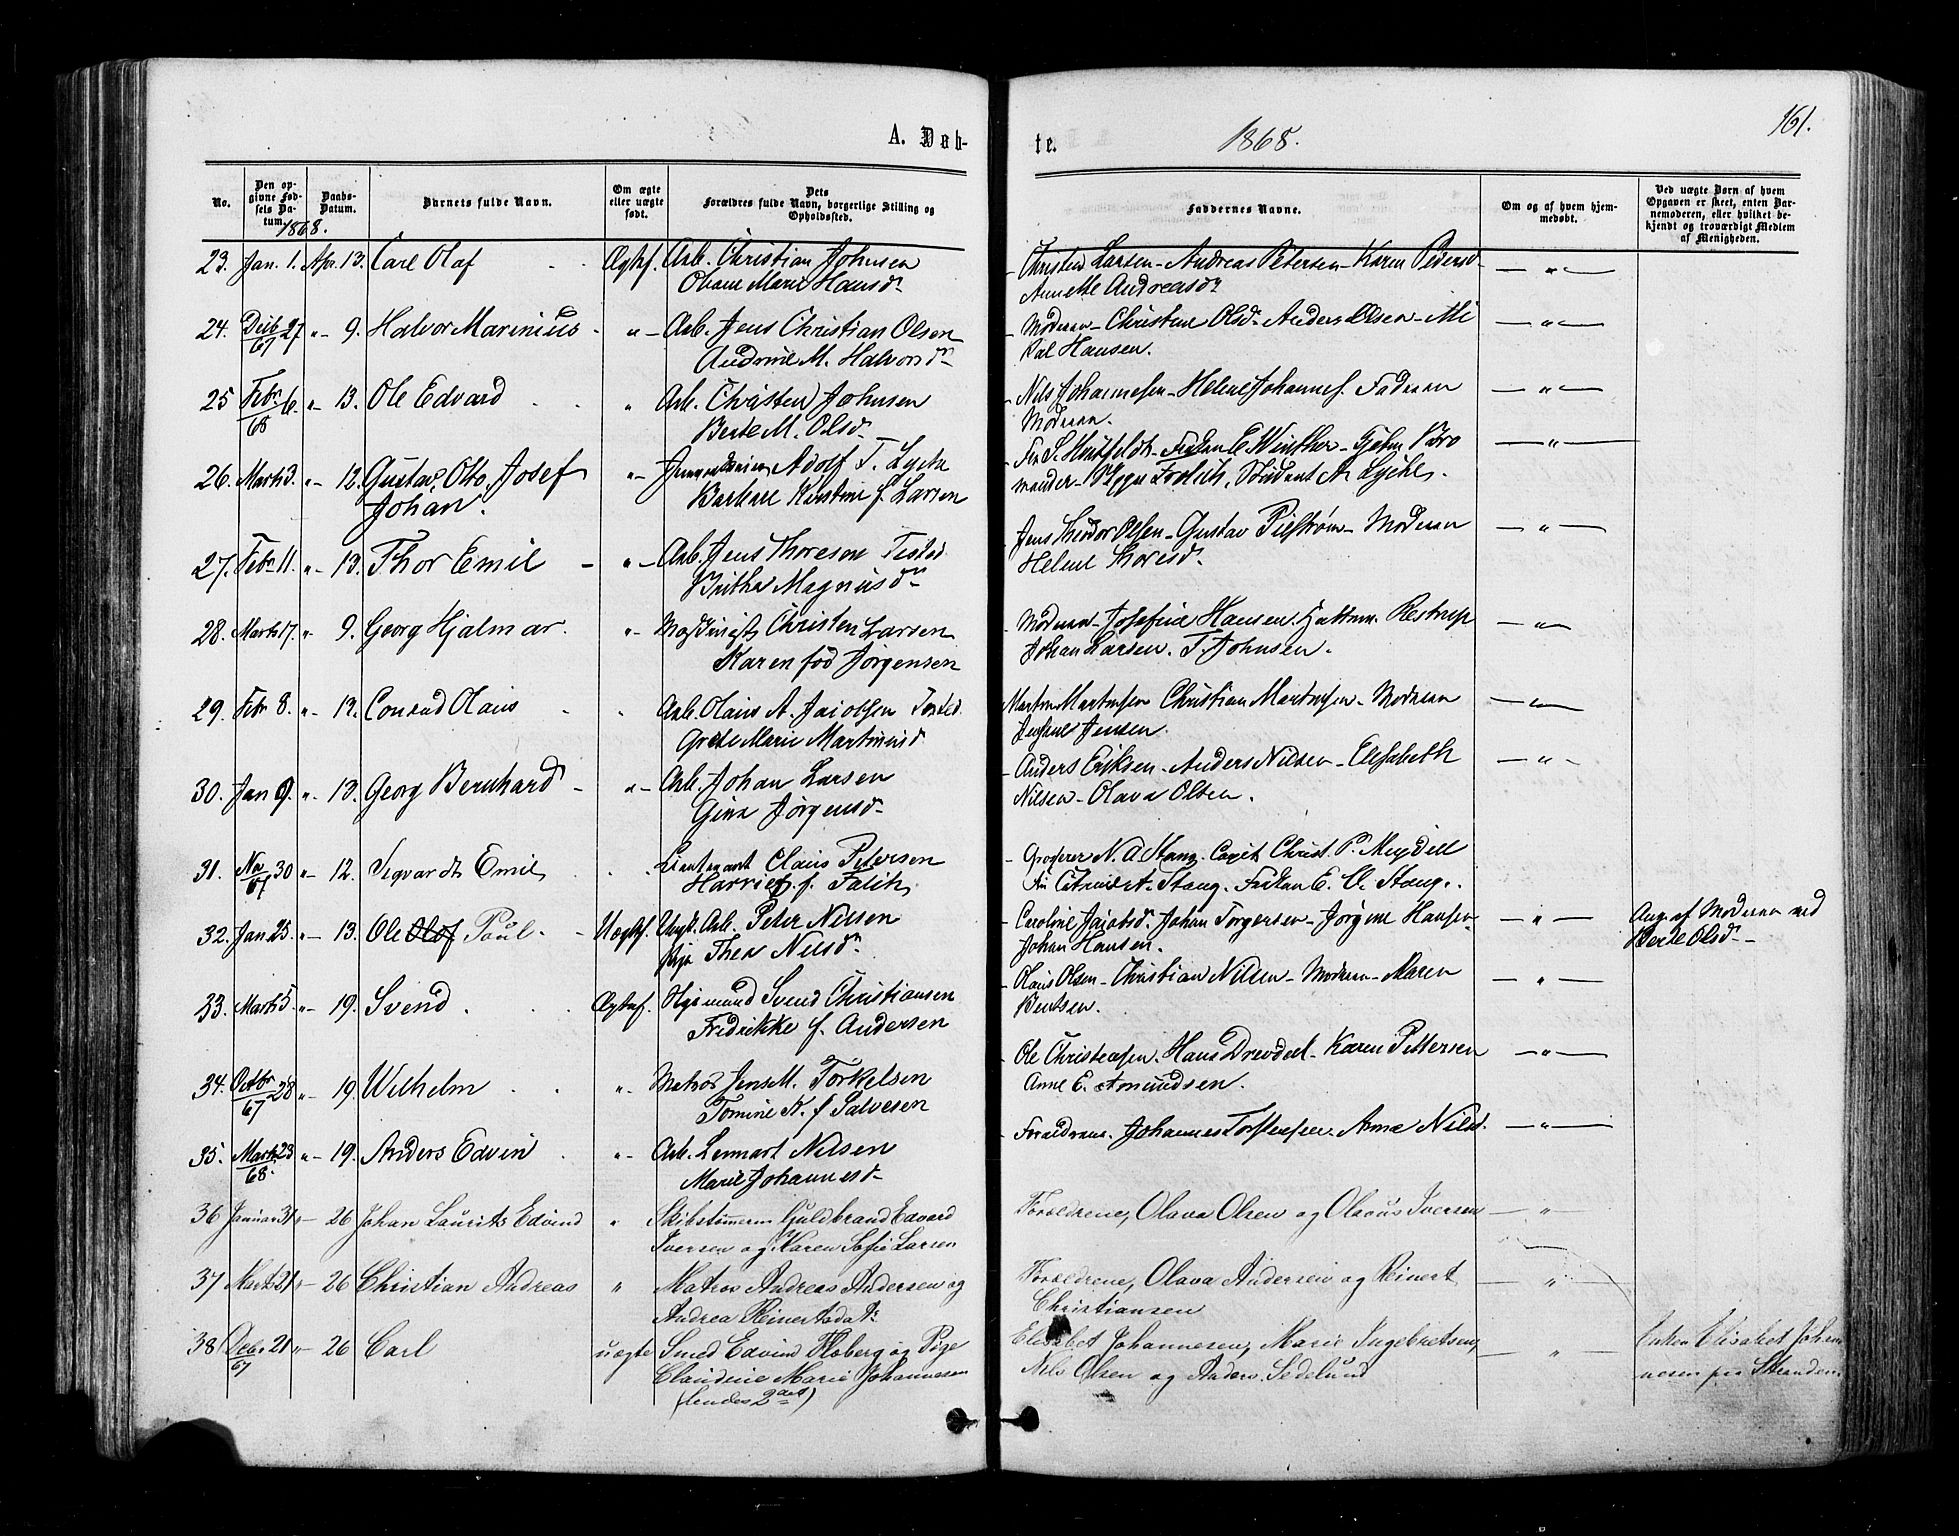 A. Dab-
te.
1868.
161.
No.
Den op-
givne Fød-
sels Da-
tum.
1868.
Daabs-
Datum.
Barnets fulde Navn.
Om ægte
eller uægte
født.
Dets
Forældres fulde Navn, borgerlige Stilling og
Opholdssted.
Faddernes Navne.
Om og af hvem hjem-
medøbt.
Ved uægte Børn af hvem
Opgaven er skeet, enten Bar-
nemoderen, eller hvilket be-
kjendt og troværdigt Medlem
af Menigheden.
23. Jan. 1. Apr. 13. Carl Olaf Ægtef. Arb. Christian Johnsen Christen Larsen - Andreas Petersen - Karen Pedersd. — " —
Olava Marie Hansd. Annette Andreasd.
24. Decb 67 27 " - 9. Halvor Marinius - " - Arb. Jens Christian Olsen - Moderen - Christine Olsd. - Anders Olsen - Mi — " —
Andrine M. Halvorsd. kal Hansen.
25 Febr. 68 6. " - 13. Ole Edvard " Arb. Christen Johnsen - Nils Johannesen - Helene Johannes. Faderen — " —
Berte M. Olsd. Moderen.
26. Marts 3. " - 12. Gustav Otto Josef " - Adolf T. Lyche - C. Winther - — " —
Johan. Barbara Kirstine f. Larsen Student A. Lyche.
27. Febr 11. " - 13. Thor Emil - " - Arb. Jens Thoresen Tisted Jens Theodor Olsen - Gustav Pilstrøm - Moderen — " —
Britha Magnusd. Helene Thoresd.
28. Marts 17. " - 9. Georg Hjalmar. " - Maskinist Christen Larsen - Moderen - Josefine Hansen. Restrup — " —
Karen fød Jørgensen Johan Larsen. T. Johnsen.
29. Febr 8. " - 12. Conrad Olaus Arb. Olaus A. Jacobsen Tisted. Martin Martinsen Christian Martinsen - Moderen — " —
Grete Marie Martinusd Jensen.
30. Jan 9. " - 13. Georg Bernhard - " - Arb. Johan Larsen - Anders Eriksen - Anders Nilsen - Elisabeth — " —
Gina Jørgensd. Nilsen - Olava Olsen.
31. Nov 67 30 " - 12. Sigvardt Emil Lieutenant Claus Petersen - Grosserer N. A. Stang. Capit. Christ. P.
Harriet f. Falch Stang. Frøken E. C. Stang.
32. Jan 25. " - 13. Ole Olof Poul. - Uægtef. Ungk. Arb. Peter Nilsen - Caroline Jacobsd. Johan Torgersen - Jørgine Hansen — " — Ang. af Moderen ved
Pige Thea Nilsd. Johan Hansen. Berte Olsd. -
33. Marts 5 " - 19. Svend. Ægtef. Svend Christiansen - Olaus Olsen - Christian Nilsen - Moderen - Maren — " —
Fredrikke f. Andersen Bentsen.
34. Octbr 67 28 " - 19. Wilhelm " - Matros Jens M. Torkelsen Ole Christensen. Hans Drevdeel - Karen Pettersen — " —
Tomine K. f. Salvesen Anne E. Amundsen.
35. Marts 68. 23 " - 19. Anders Edvin. " - Arb. Lennart Nilsen - Forældrene. Johannes Torstensen. Anne Nilsd. — " —
Marie Johannesd.
36 Januar 31 " - 26 Johan Laurits Edvind " Skibstømmerm. Guldbrand Edvard Forældrene, Olava Olsen og Olavus Iversen — " —
Iversen og Karen Sofie Larsen
37 Marts 21 " - 26 Christian Andreas " Matros Andreas Andersen og Forældrene, Olava Andersen og Reinert — " —
Andrea Reinertsdatr. Christiansen
38 Decbr 67 21 " - 26 Carl uægte Smed Edvind Floberg og Pige Elisabet Johannesen, Marie Ingebretsen, — " — Enken Elisabet Johan-
Claudine Marie Johannesen Nils Olsen og Anders Sedelund nesen paa Stranden
(hendes 2det)